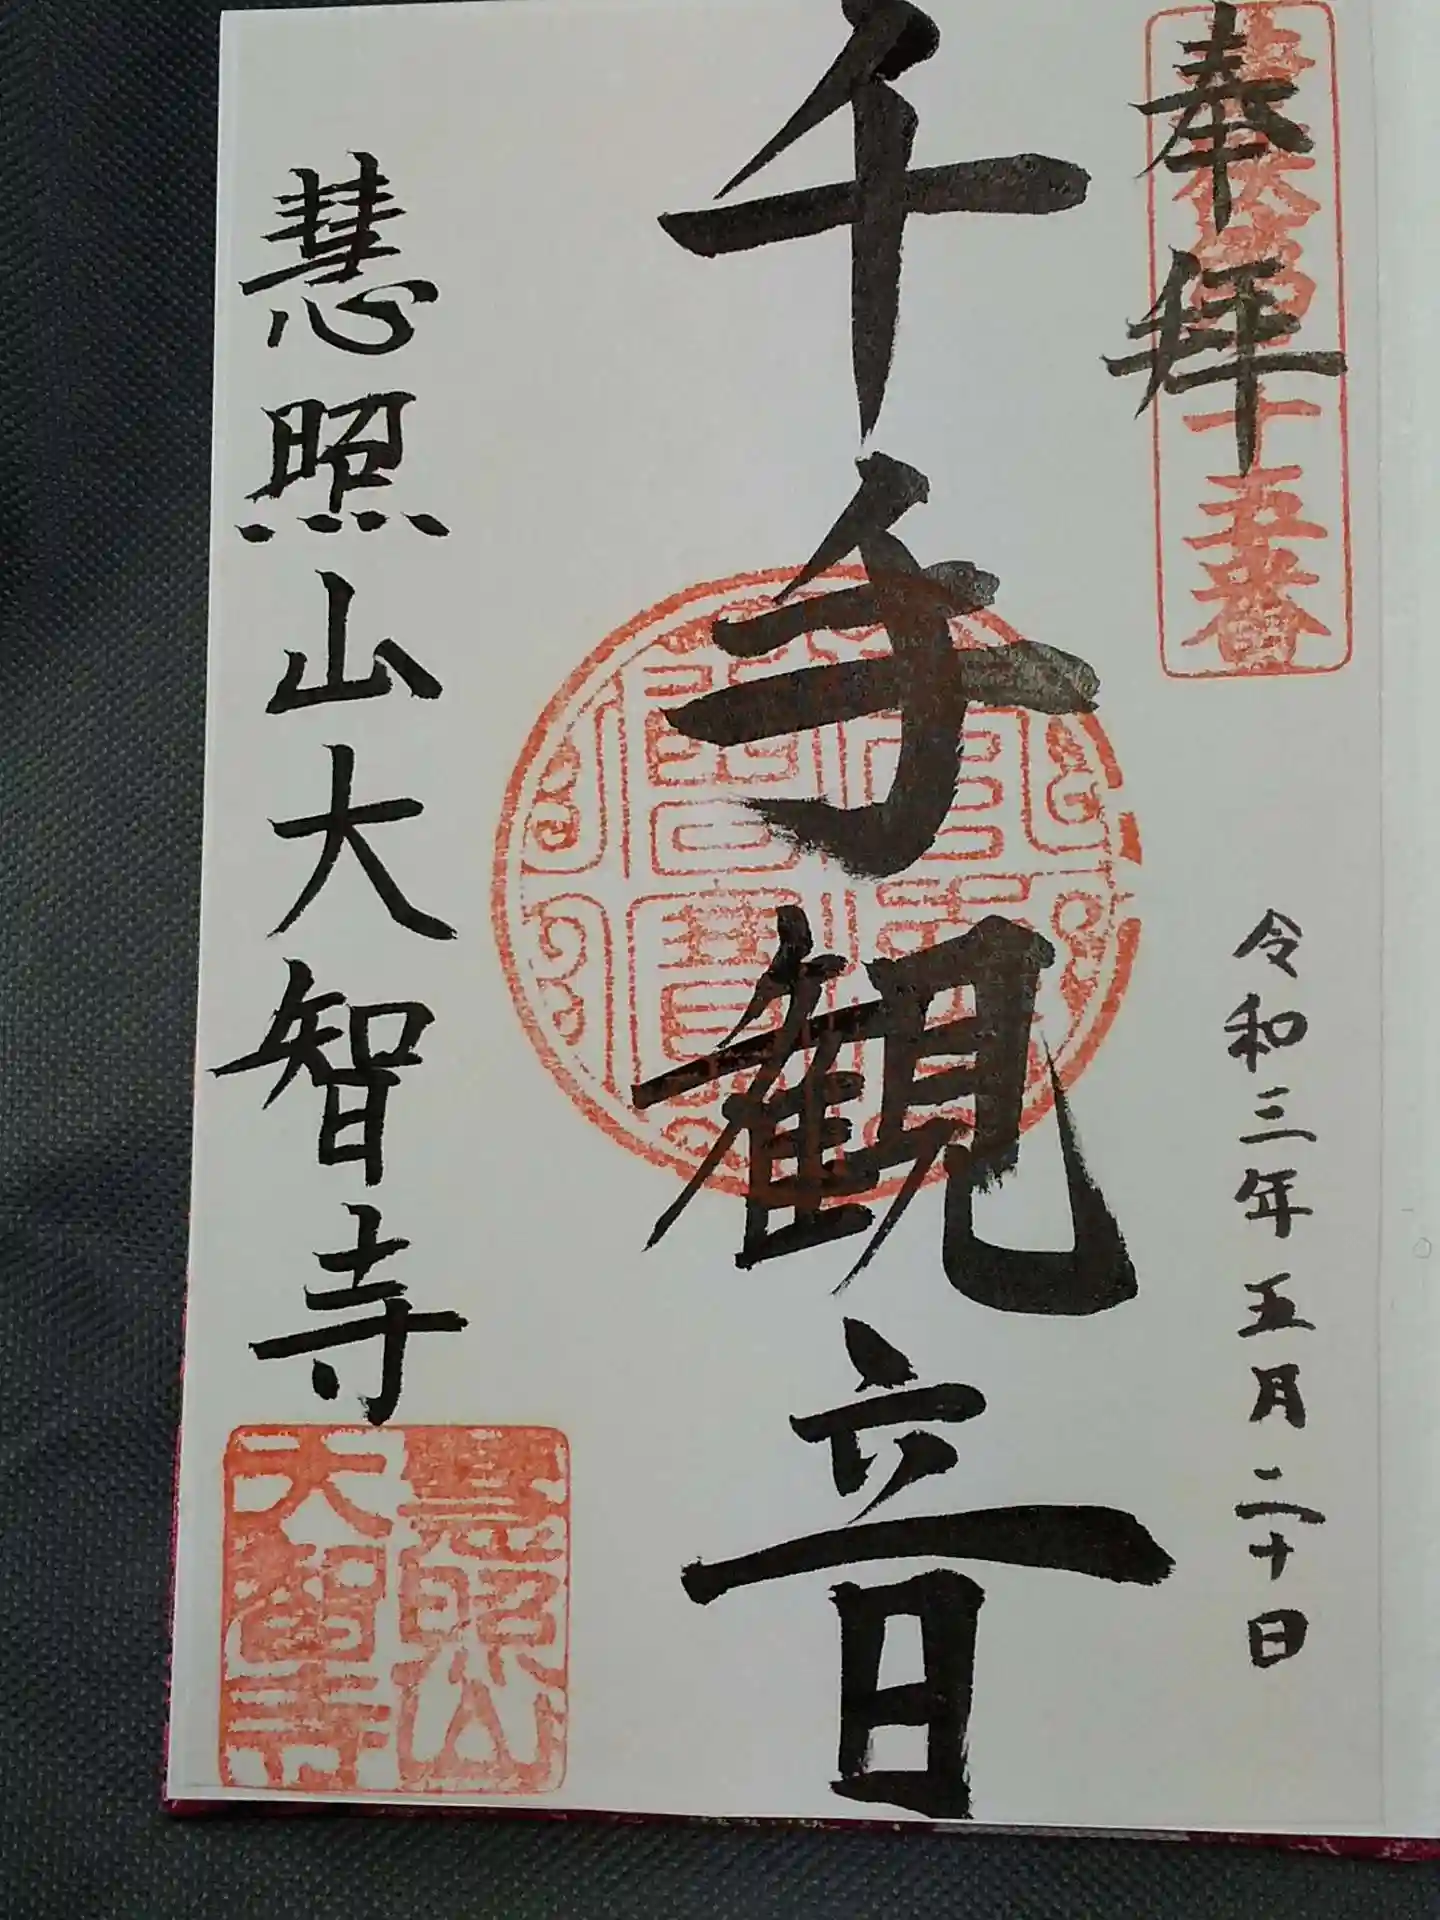 奉拝
十五番
令和三年五月二十日
千手観音
慧照山大智寺
慧照山
大智寺